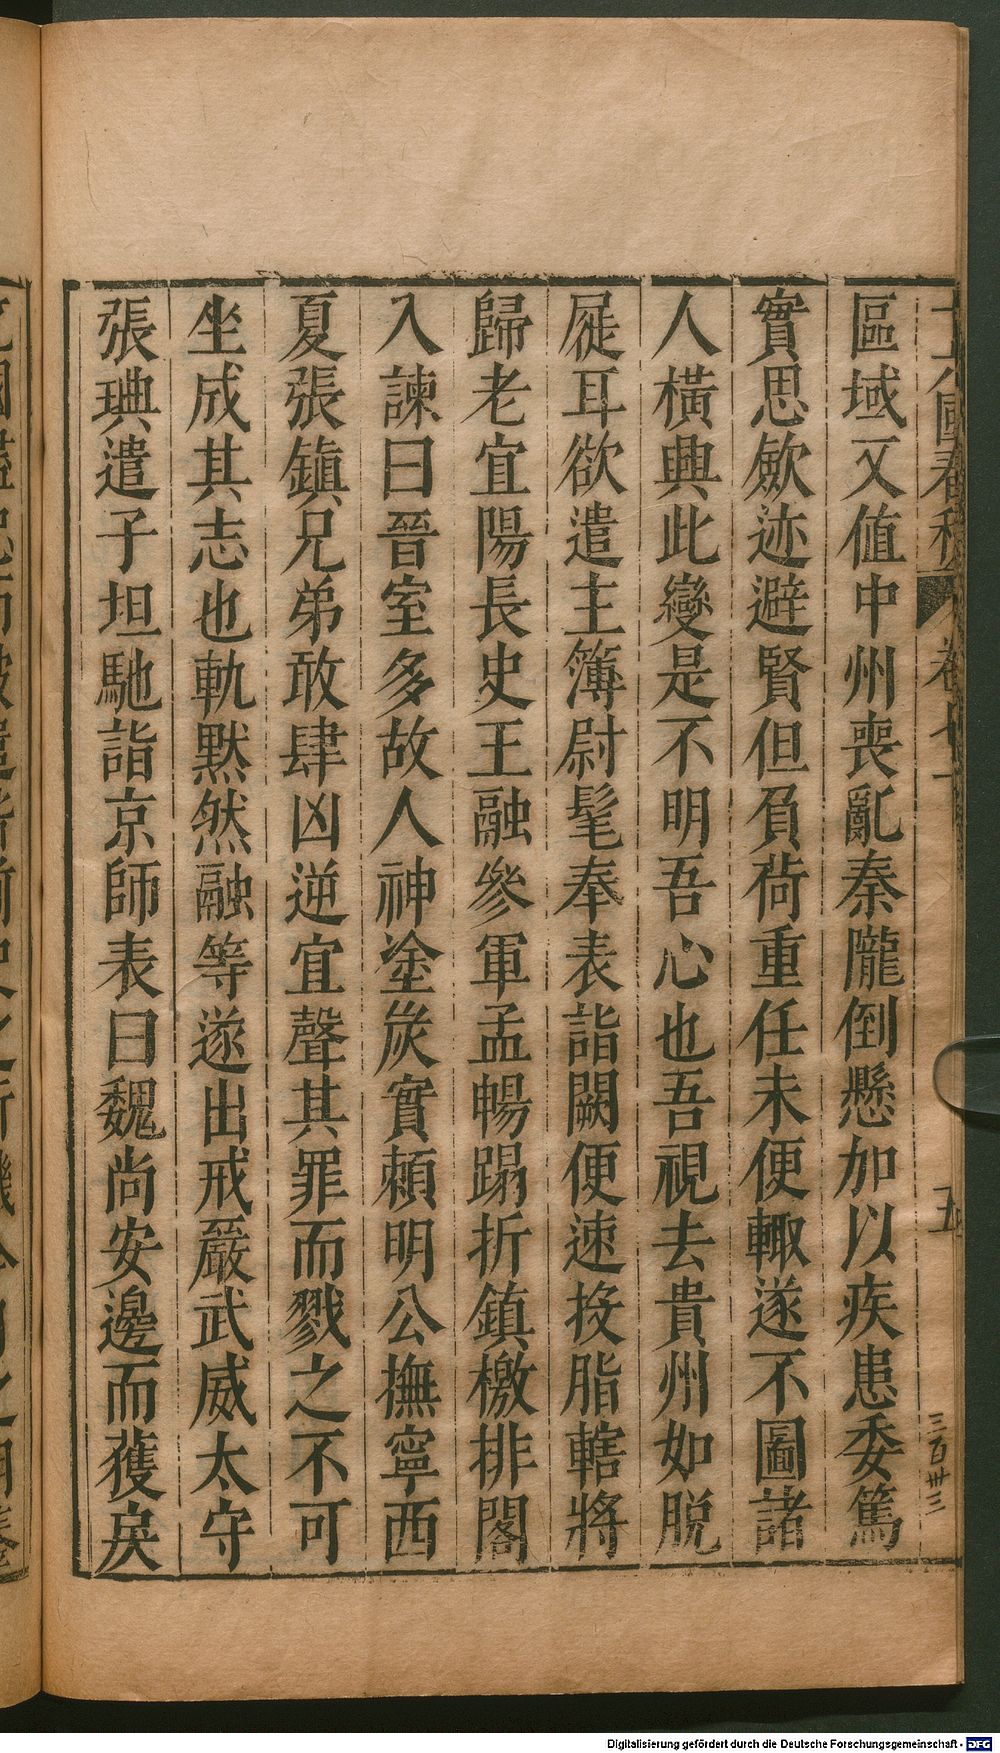 十六國春秋 卷七十 五
三百卅三
區域又值中州喪亂秦隴倒懸加以疾患委篤
實思歛迹避賢但負荷重任未便輙遂不圖諸
人橫興此變是不明吾心也吾視去貴州如脫
屣耳欲遣主簿尉髦奉表詣闕便速按脂轄將
歸老宜陽長史王融參軍孟暢蹋折鎮檄排閤
入諫曰晉室多故人神塗炭實頼明公撫寧西
夏張鎮兄弟敢肆凶逆宜聲其罪而戮之不可
坐成其志也軌默然融等遂出戒嚴武威太守
張琠遣子坦馳詣京師表曰魏尚安邊而獲戾
Digitalisierung gefördert durch die Deutsche Forschungsgemeinschaft - DFG